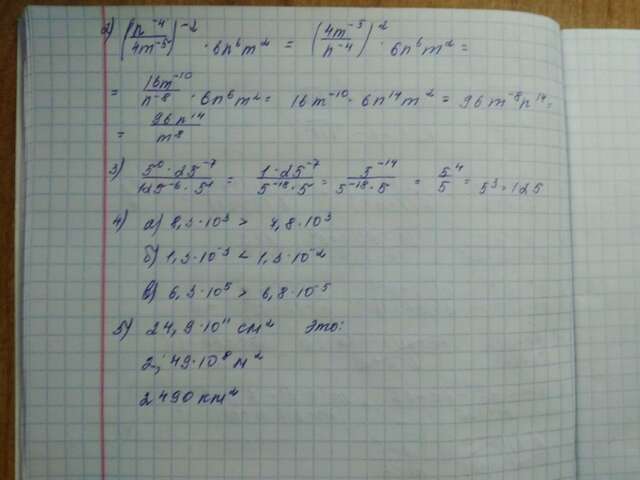 2) (n⁻⁴/4m⁻⁵)⁻² · 6n⁶m² = (4m⁻⁵/n⁻⁴)² · 6n⁶m² =
= 16m⁻¹⁰/n⁻⁸ · 6n⁶m² = 16m⁻¹⁰ · 6n¹⁴m² = 96m⁻⁸n¹⁴ =
= 96n¹⁴/m⁸
3) 5⁰·25⁻⁷/125⁻⁶·5¹ = 1·25⁻⁷/5⁻¹⁸·5 = 5⁻¹⁴/5⁻¹⁸·5 = 5⁴/5 = 5³=125
4) а) 8,3·10³ > 7,8·10³
б) 1,3·10⁻³ < 1,3·10⁻²
в) 6,3·10⁵ > 6,8·10⁻⁵
5) 24,9·10¹¹ см² Это:
2,49·10⁸ м²
2490 км²